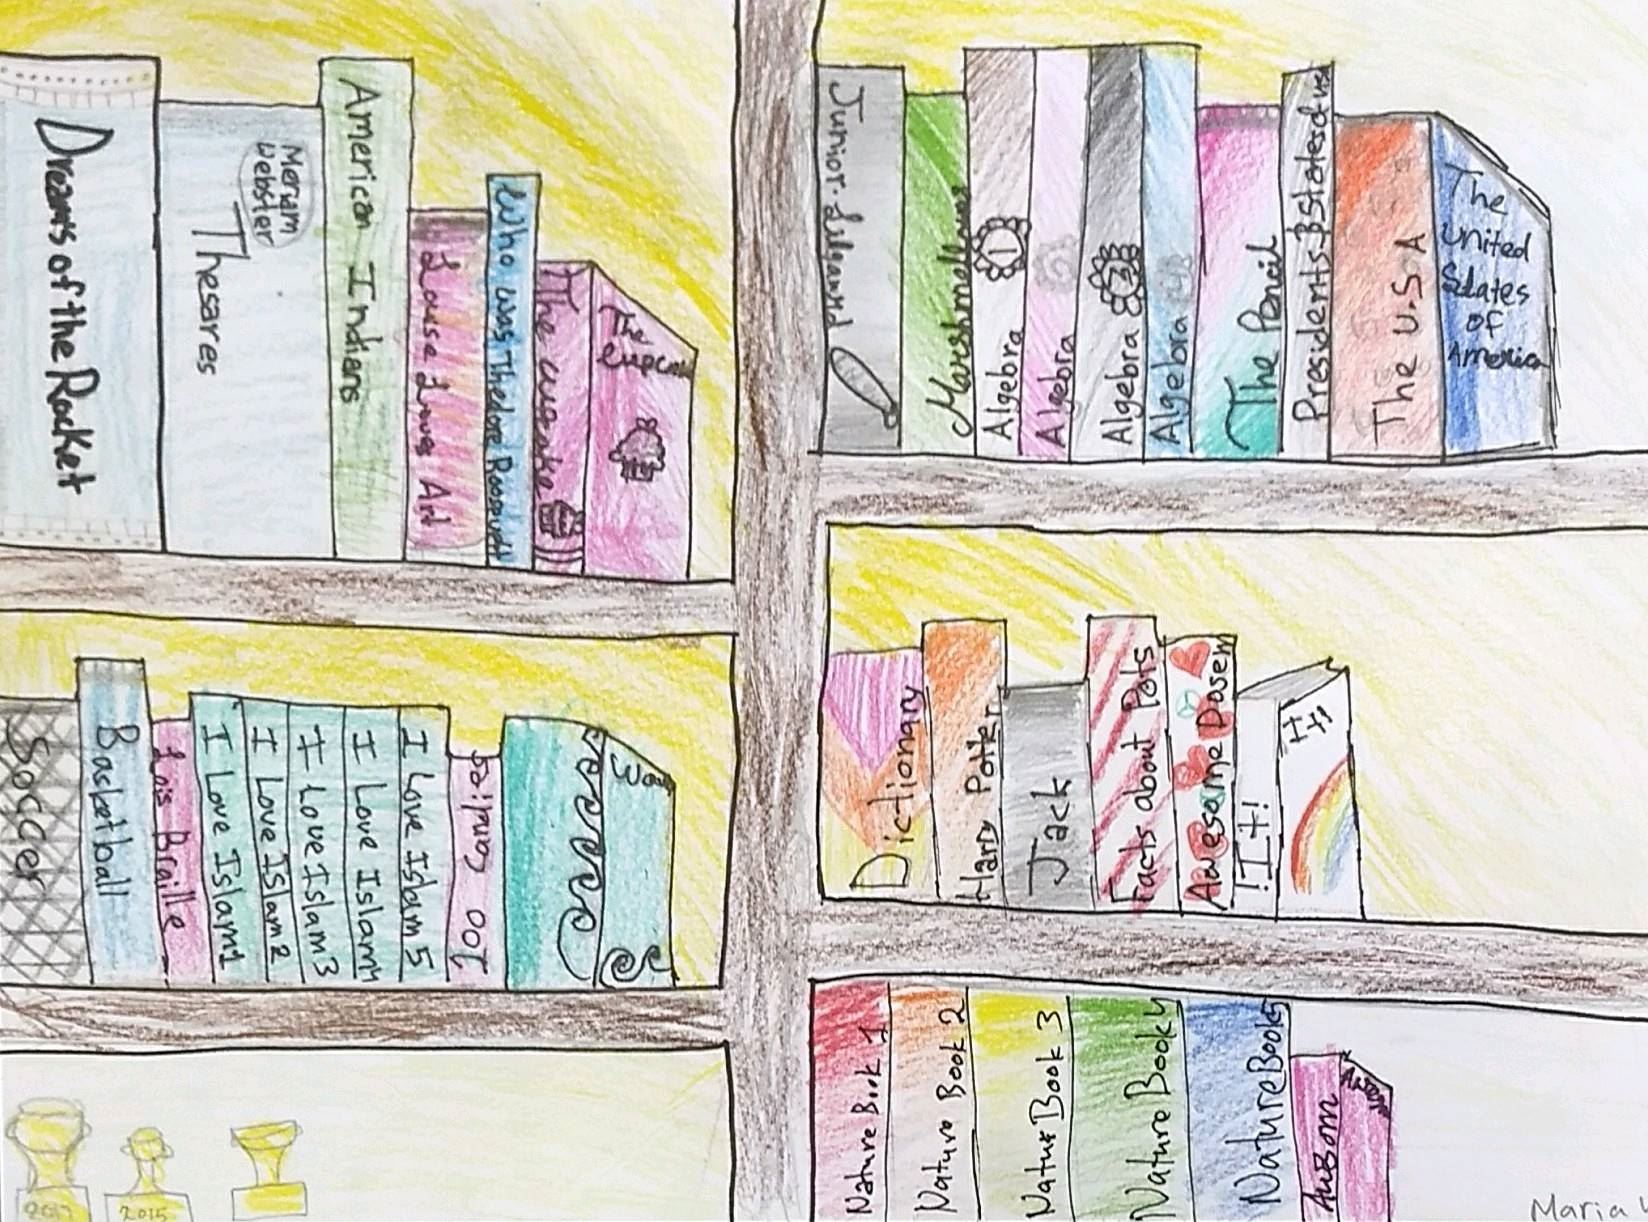 Dreams of the Rocket
Meriam
Webster
Thesares
American Indians
Louse Loves Art
Who was Thedore Roosevelt
The cupcake
The
cupcake
Junior Legand
Marshmellows
Algebra 1
Algebra
Algebra 3
Algebra
The Pencil
Presidents
The U.S.A
The
United
States
of
America
Soccer
Basketball
Lois Braille
I Love Islam 1
I Love Islam 2
I Love Islam 3
I Love Islam 4
I Love Islam 5
100 Candies
Dictionary
Harry Potter
Jack
Facts about Pets
Awesome
!It!
It!
Nature Book 1
Nature Book 2
Nature Book 3
Nature Book 4
Nature Book 5
AwSom
2017
2015
Maria